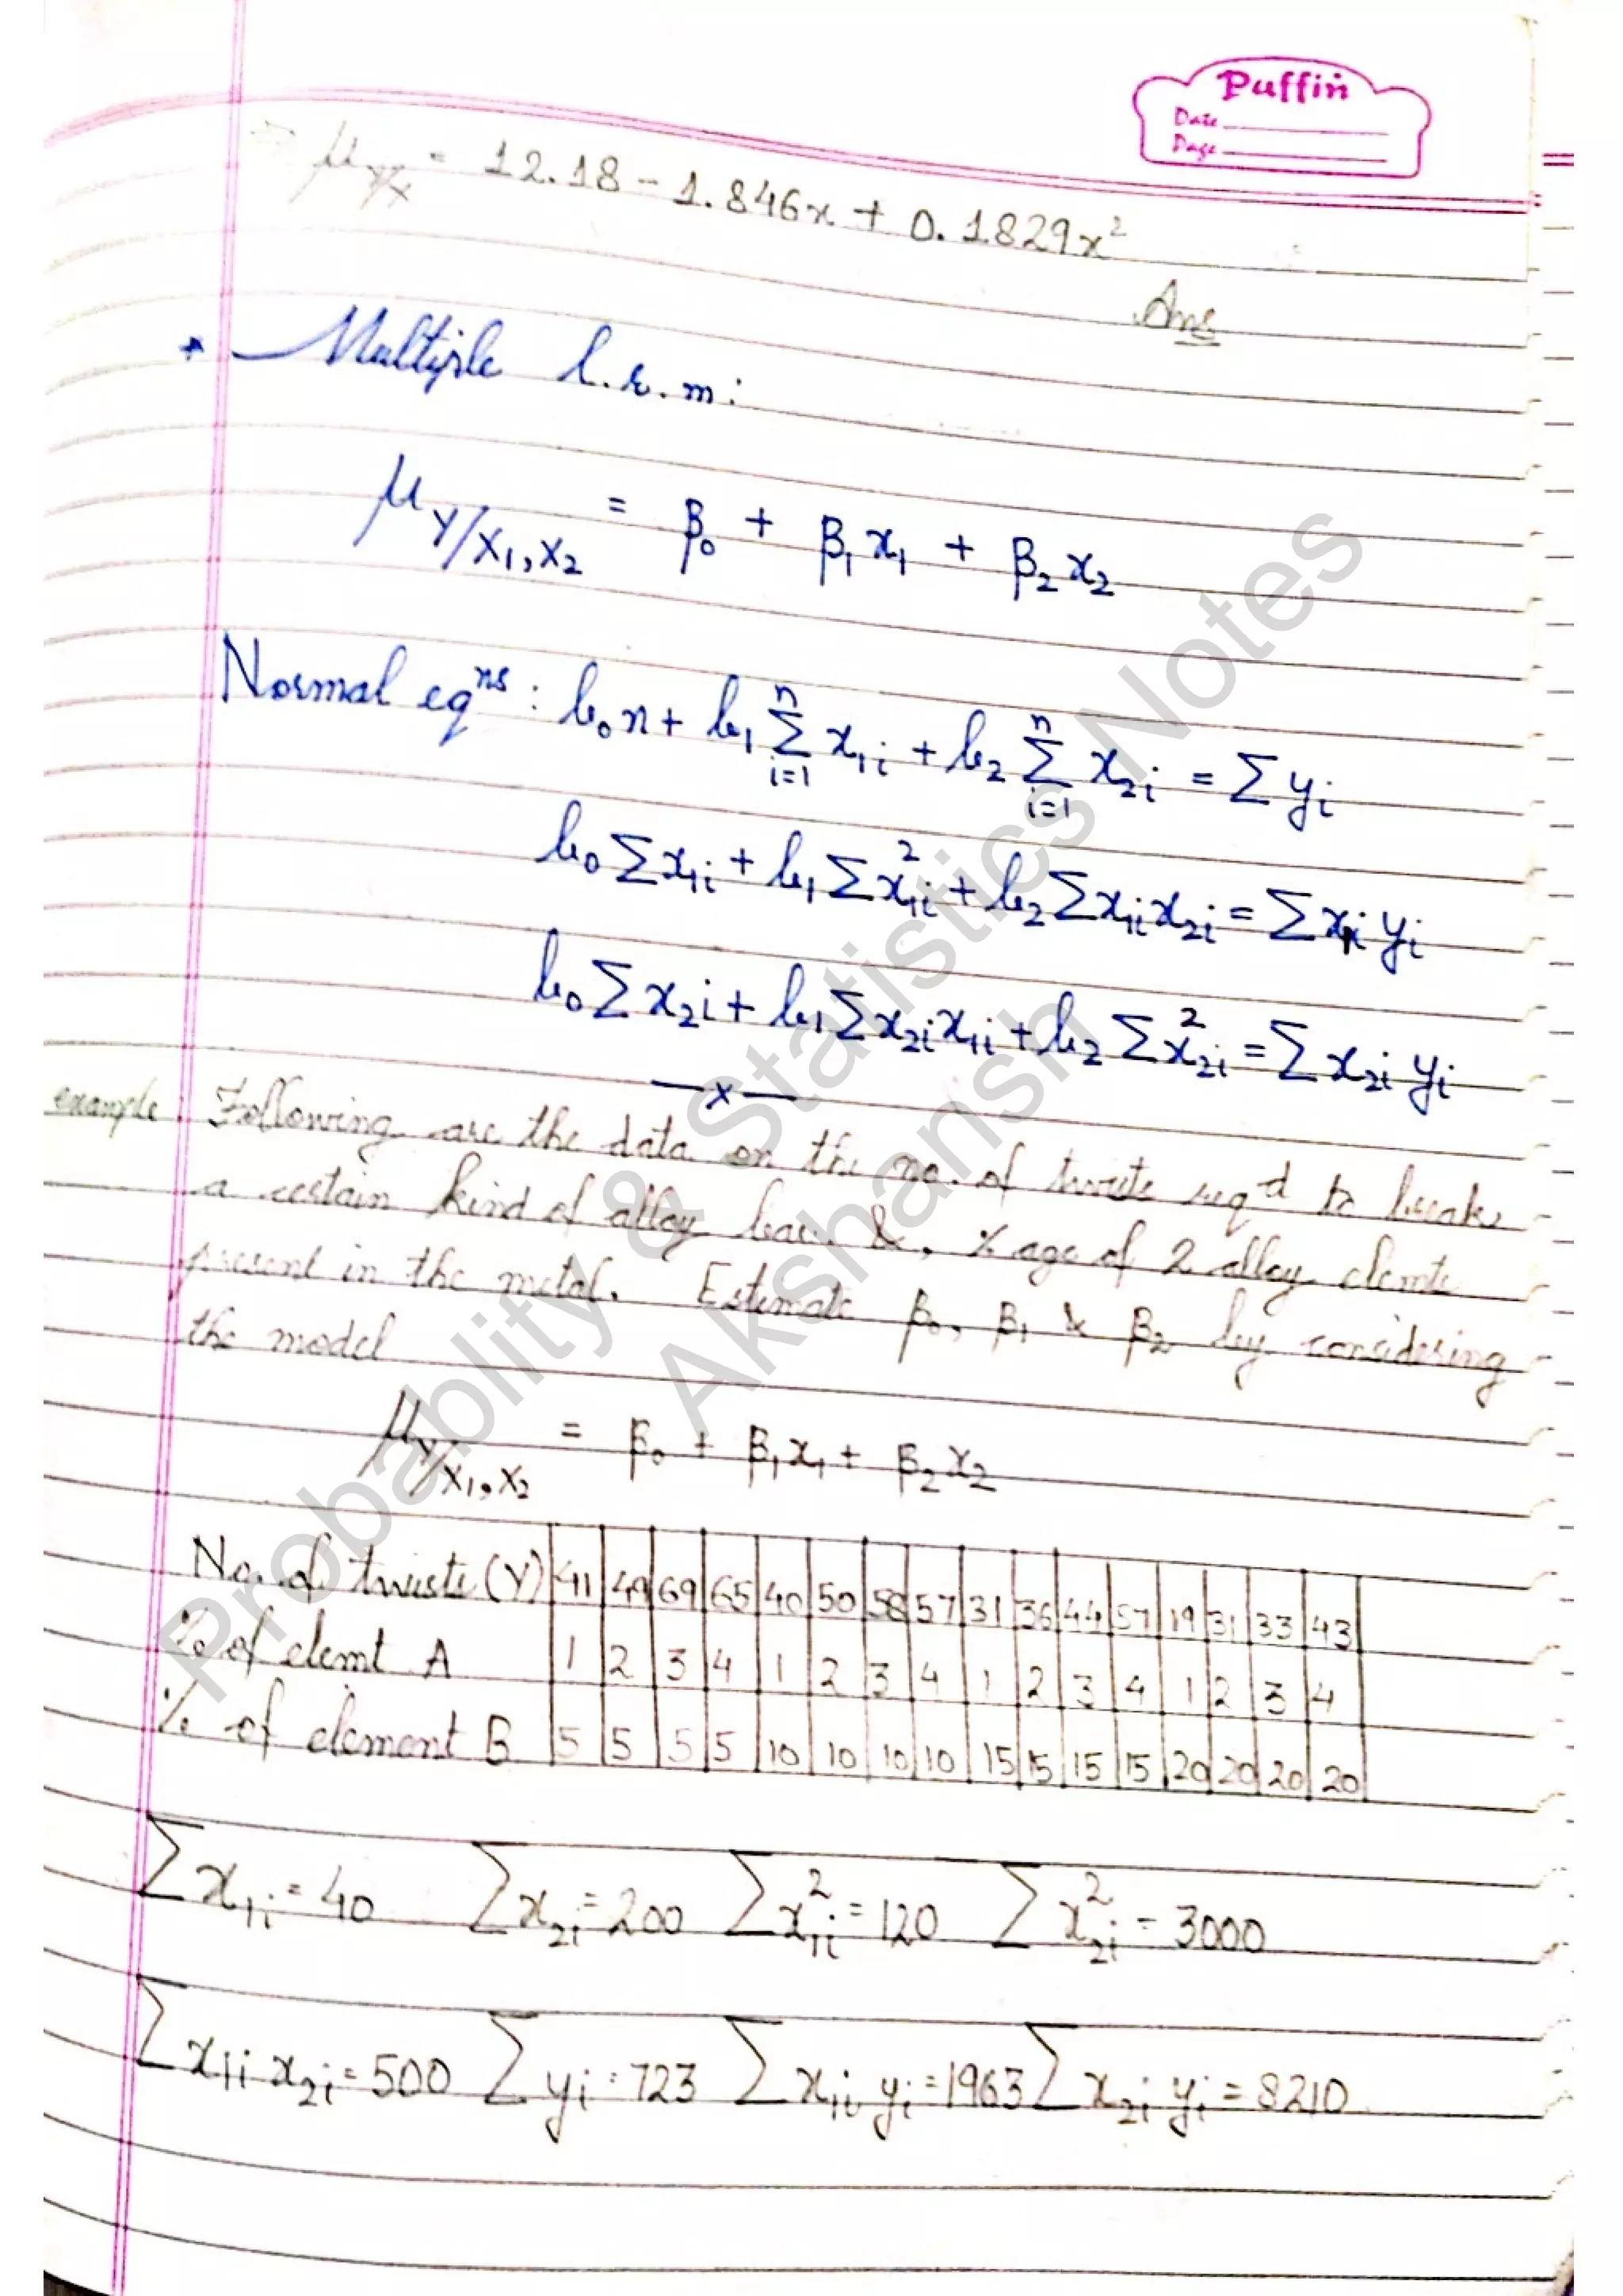 Puffin
Date
Page
μ_{Y/X} = 12.18 - 1.846x + 0.1829x²
Ans
* Multiple l.r.m:
μ_{Y/X₁,X₂} = β₀ + β₁x₁ + β₂x₂
Normal eqⁿˢ: b₀n + b₁ ∑_{i=1}^{n} x₁ᵢ + b₂ ∑_{i=1}^{n} x₂ᵢ = ∑yᵢ
b₀∑x₁ᵢ + b₁∑x₁ᵢ² + b₂∑x₁ᵢx₂ᵢ = ∑x₁ᵢyᵢ
b₀∑x₂ᵢ + b₁∑x₂ᵢx₁ᵢ + b₂∑x₂ᵢ² = ∑x₂ᵢyᵢ
—x—
example Following are the data on the no. of twists req'd to break
a certain kind of alloy bar & % age of 2 alloy elemts
present in the metal. Estimate β₀, β₁ & β₂ by considering
the model
μ_{Y/X₁,X₂} = β₀ + β₁x₁ + β₂x₂
No. of twists (Y) 41 49 69 65 40 50 58 57 31 36 44 57 19 31 33 43
% of elemt A 1 2 3 4 1 2 3 4 1 2 3 4 1 2 3 4
% of element B 5 5 5 5 10 10 10 10 15 15 15 15 20 20 20 20
∑x₁ᵢ = 40 ∑x₂ᵢ = 200 ∑x₁ᵢ² = 120 ∑x₂ᵢ² = 3000
∑x₁ᵢx₂ᵢ = 500 ∑yᵢ = 723 ∑x₁ᵢyᵢ = 1963 ∑x₂ᵢyᵢ = 8210
Probablity & Statistics Notes
Akshansh